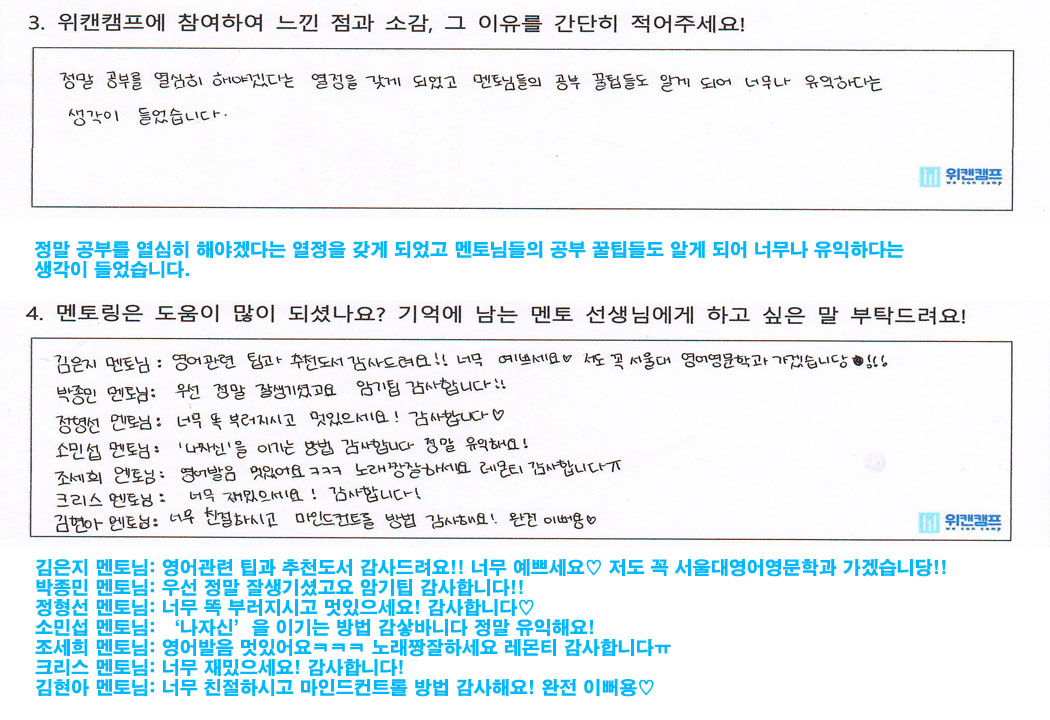 3. 위캔캠프에 참여하여 느낀 점과 소감, 그 이유를 간단히 적어주세요!
정말 공부를 열심히 해야겠다는 열정을 갖게 되었고 멘토님들의 공부 꿀팁들도 알게 되어 너무나 유익하다는
생각이 들었습니다.
위캔캠프
we can camp
정말 공부를 열심히 해야겠다는 열정을 갖게 되었고 멘토님들의 공부 꿀팁들도 알게 되어 너무나 유익하다는
생각이 들었습니다.
4. 멘토링은 도움이 많이 되셨나요? 기억에 남는 멘토 선생님에게 하고 싶은 말 부탁드려요!
김은지 멘토님 : 영어관련 팁과 추천도서 감사드려요!! 너무 예쁘세요♡ 저도 꼭 서울대 영어영문학과 가겠습니당!!!
박종민 멘토님: 우선 정말 잘생기셨고요 암기팁 감사합니다!!
정형선 멘토님: 너무 똑 부러지시고 멋있으세요! 감사합니다♡
소민섭 멘토님: '나자신'을 이기는 방법 감사합니다 정말 유익해요!
조세희 멘토님: 영어발음 멋있어요ㅋㅋㅋ 노래짱잘하세요 레몬티 감사합니다ㅠ
크리스 멘토님: 너무 재밌으세요! 감사합니다!
김현아 멘토님: 너무 친절하시고 마인드컨트롤 방법 감사해요! 완전 이뻐용♡
위캔캠프
we can camp
김은지 멘토님: 영어관련 팁과 추천도서 감사드려요!! 너무 예쁘세요♡ 저도 꼭 서울대영어영문학과 가겠습니당!!
박종민 멘토님: 우선 정말 잘생기셨고요 암기팁 감사합니다!!
정형선 멘토님: 너무 똑 부러지시고 멋있으세요! 감사합니다♡
소민섭 멘토님: ‘나자신’을 이기는 방법 감샇바니다 정말 유익해요!
조세희 멘토님: 영어발음 멋있어요ㅋㅋㅋ 노래짱잘하세요 레몬티 감사합니다ㅠ
크리스 멘토님: 너무 재밌으세요! 감사합니다!
김현아 멘토님: 너무 친절하시고 마인드컨트롤 방법 감사해요! 완전 이뻐용♡